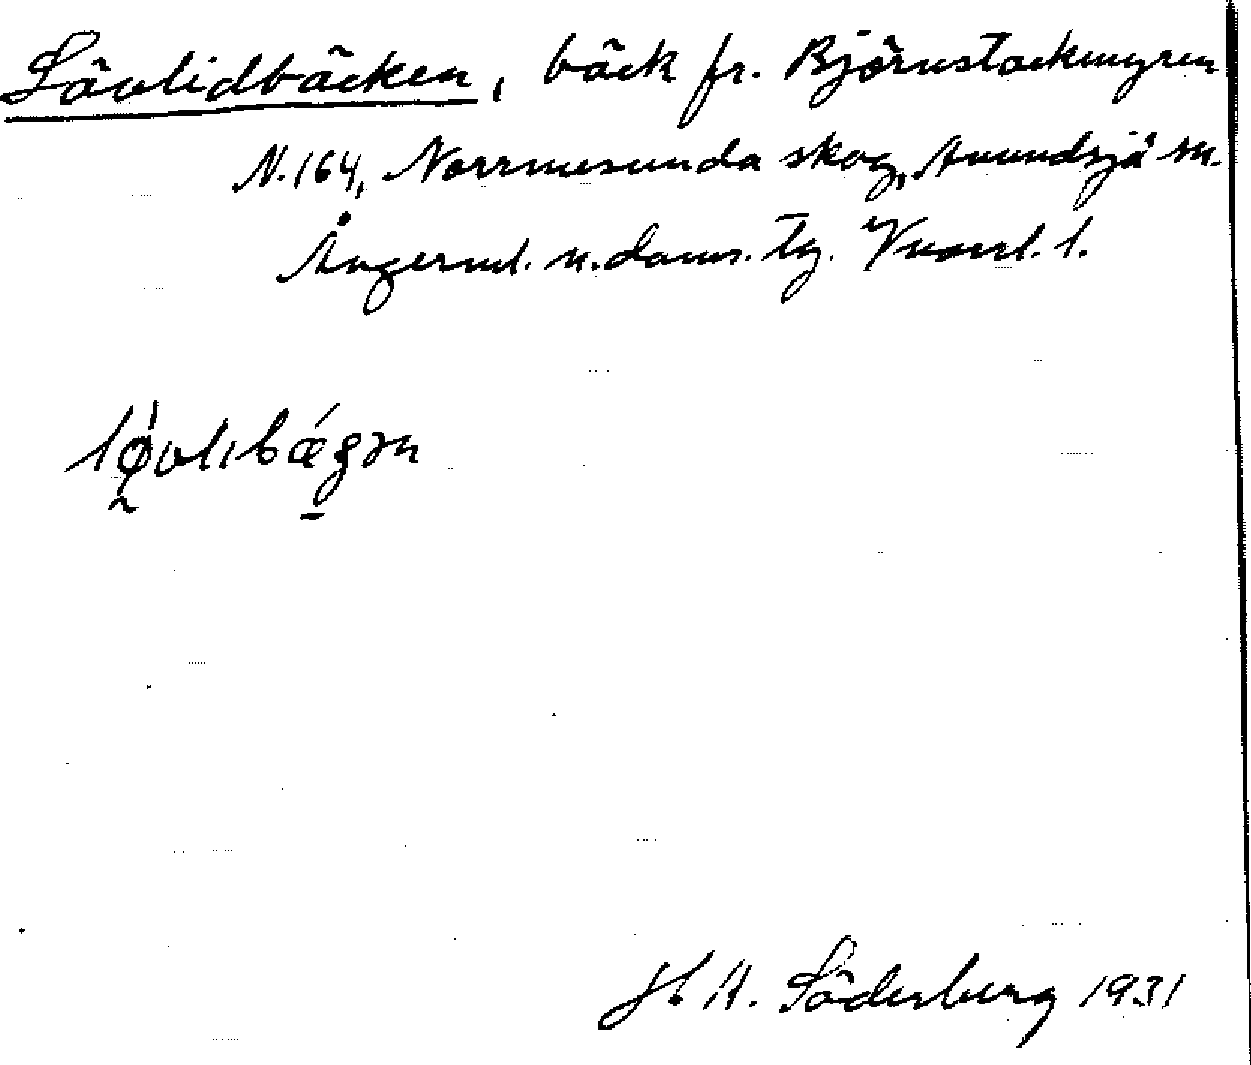 Lövlidbäcken, bäck fr. Björnstockmyren
N. 164, Norrmesunda skog, Anundsjö sn.
Ångerml. n. doms. tg. Västerl. l.
H. A. Söderberg 1931